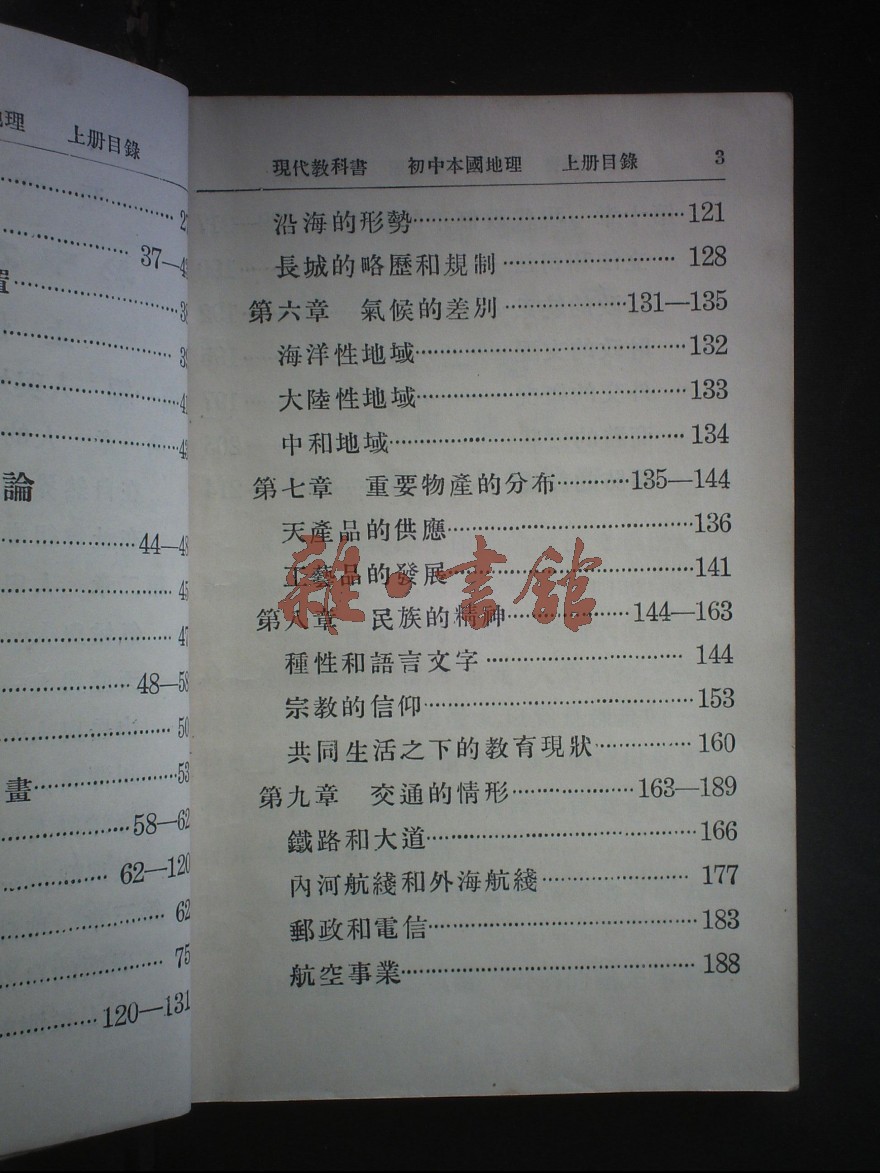 理 上册目錄
37—4
置
論
44—48
45
47
48—58
50
畫 53
58—62
62—120
62
75
120—131
現代教科書 初中本國地理 上册目錄 3
沿海的形勢 121
長城的略歷和規制 128
第六章 氣候的差別 131—135
海洋性地域 132
大陸性地域 133
中和地域 134
第七章 重要物產的分布 135—144
天產品的供應 136
工藝品的發展 141
第八章 民族的精神 144—163
種性和語言文字 144
宗教的信仰 153
共同生活之下的教育現狀 160
第九章 交通的情形 163—189
鐵路和大道 166
內河航綫和外海航綫 177
郵政和電信 183
航空事業 188
雜·書館